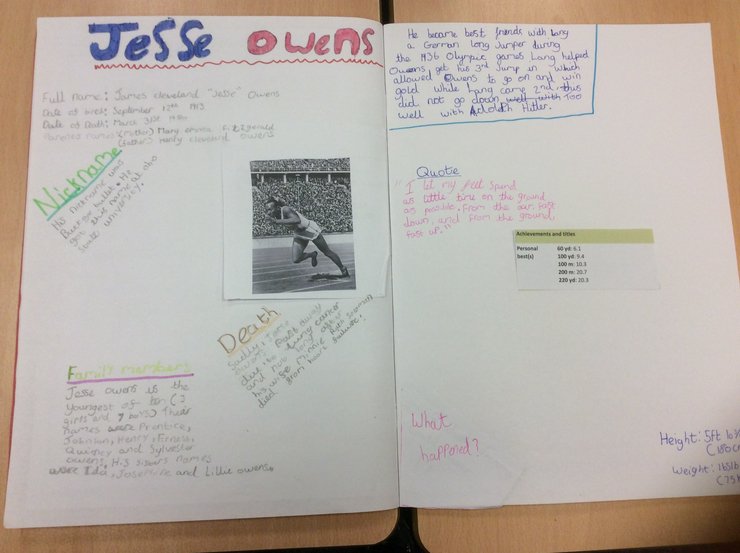 Jesse Owens
Full Name: James cleveland "Jesse" Owens
Date of birth: September 12th 1913
Date of Death: March 31st 1980
Parents names: (mother) Mary Emma Fitzgerald
(father) Henry cleveland Owens
Nickname
His nickname was
Buckeye bullet. He
got this name at ohio
state university.
Death
Sadly, Jesse
Owens Past away
due to lung cancer
and not long after
his wife Minnie Ruth Solomon
died from heart failure!
Family members
Jesse owens is the
youngest of ten (3
girls and 7 boys) Their
names were Prentice,
Johnson, Henry, Ernest,
Quincy and Sylvester
owens, His sisters names
were Ida, Josephine and Lillie owens.
He became best friends with Lang
a German long Jumper during
the 1936 Olympic games Lang helped
Owens get his 3rd Jump in which
allowed Owens to go on and win
gold while Lang came 2nd, this
did not go down well with Too
well with Adolph Hitler.
Quote
"I let my feet spend
as little time on the ground
as possible. From the air, fast
down, and from the ground,
fast up."
Achievements and titles
Personal best(s) 60 yd: 6.1
100 yd: 9.4
100 m: 10.3
200 m: 20.7
220 yd: 20.3
What
happened?
Height: 5ft
(180c
Weight: 165lb
(75k